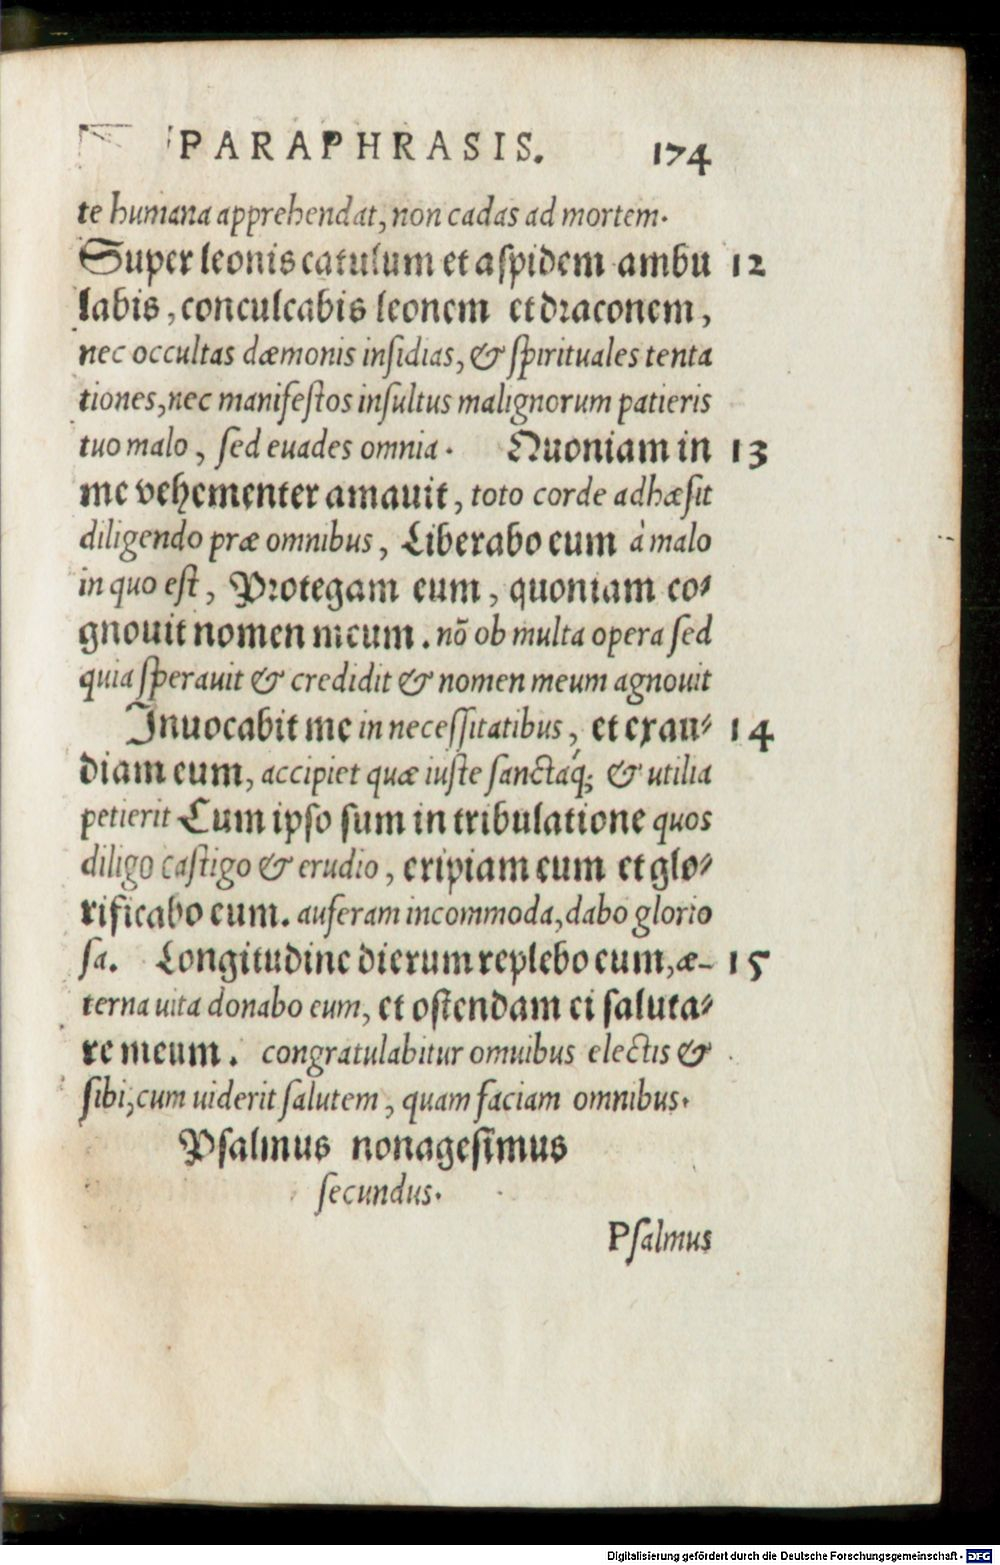 PARAPHRASIS. 174
te humana apprehendat, non cadas ad mortem.
Super leonis catulum et aſpidem ambu 12
labis, conculcabis leonem et draconem,
nec occultas dæmonis inſidias, & ſpirituales tenta
tiones, nec manifeſtos inſultus malignorum patieris
tuo malo, ſed euades omnia. Quoniam in 13
me vehementer amauit, toto corde adhæſit
diligendo præ omnibus, Liberabo eum à malo
in quo eſt, Protegam eum, quoniam co⸗
gnouit nomen meum. nō ob multa opera ſed
quia ſperauit & credidit & nomen meum agnouit
Inuocabit me in neceſſitatibus, et exau⸗ 14
diam eum, accipiet quæ iuſte ſanctaq́; & utilia
petierit Cum ipſo ſum in tribulatione quos
diligo caſtigo & erudio, eripiam eum et glo⸗
rificabo eum. auferam incommoda, dabo glorio
ſa. Longitudine dierum replebo eum, æ- 15
terna uita donabo eum, et oſtendam ei ſaluta⸗
re meum. congratulabitur omuibus electis &
ſibi, cum uiderit ſalutem, quam faciam omnibus.
Pſalmus nonageſimus
ſecundus.
Pſalmus
Digitalisierung gefördert durch die Deutsche Forschungsgemeinschaft - DFG